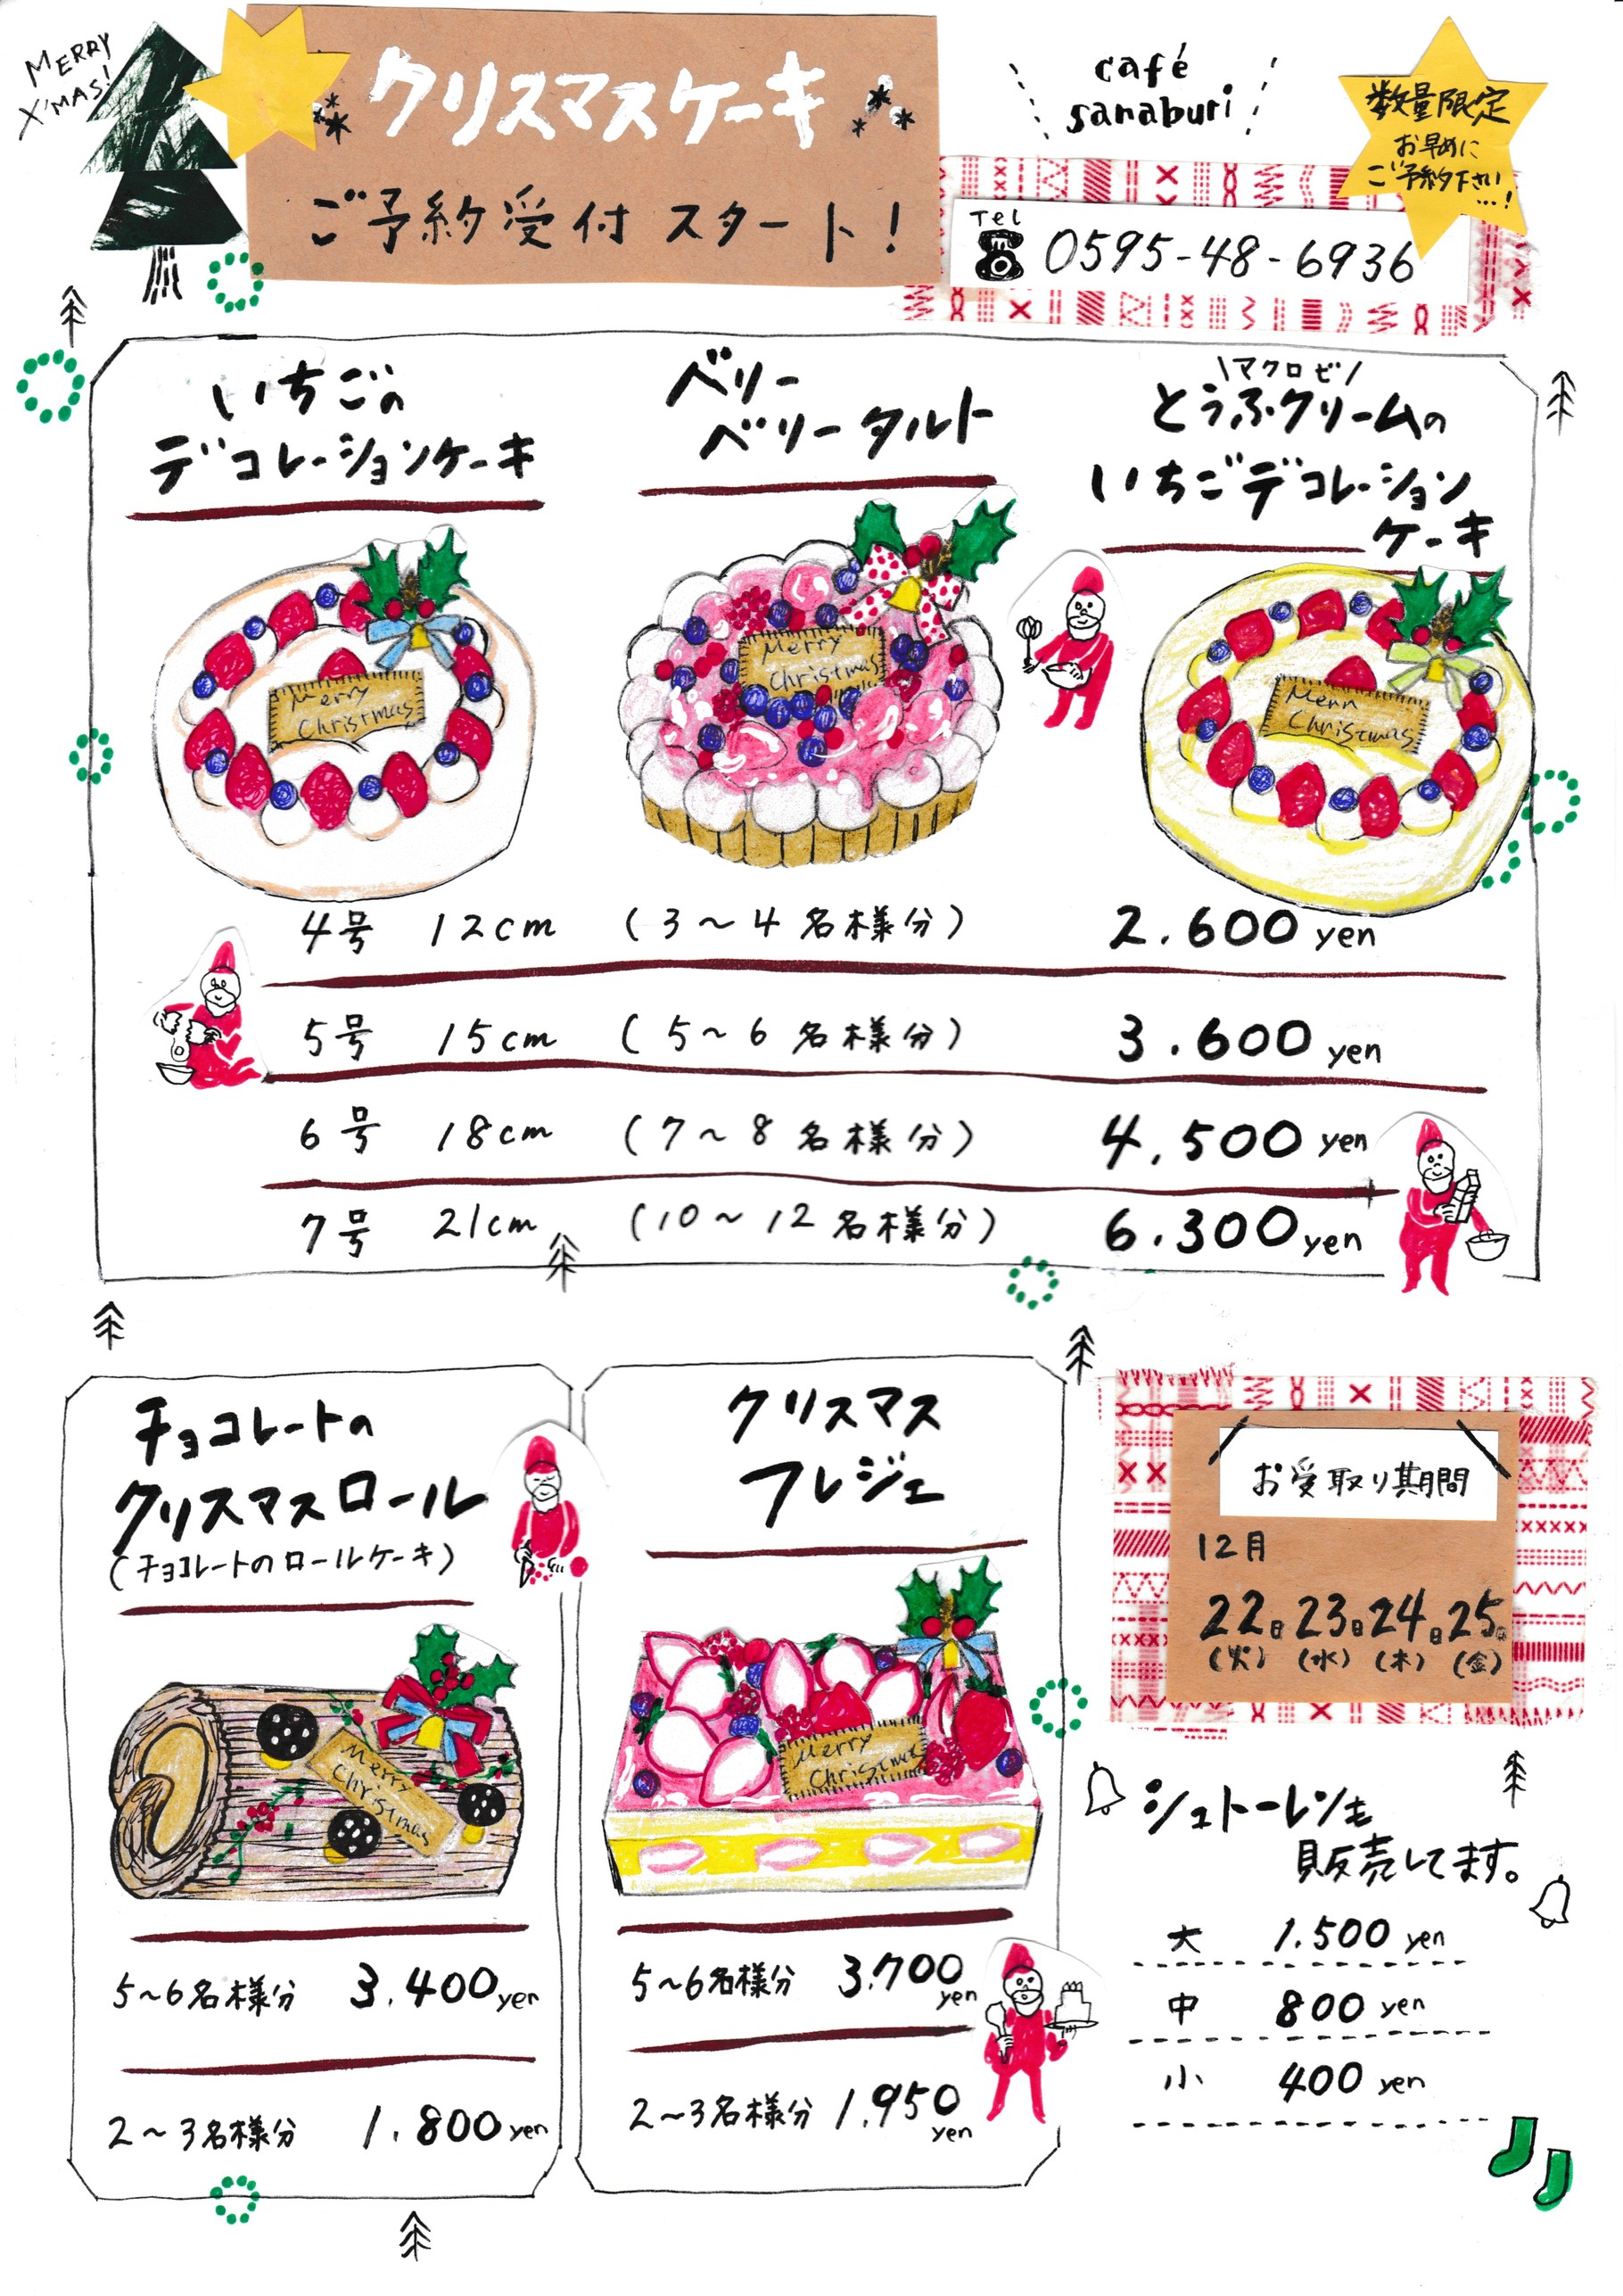 MERRY
X'MAS!
クリスマスケーキ
ご予約受付スタート!
café
sanaburi
数量限定
お早めに
ご予約下さい…!
Tel
0595-48-6936
いちごの
デコレーションケーキ
ベリー
ベリータルト
\マクロビ/
とうふクリームの
いちごデコレーション
ケーキ
Merry
Christmas
Merry
Christmas
Merry
Christmas
4号 12cm (3〜4名様分) 2.600 yen
5号 15cm (5〜6名様分) 3.600 yen
6号 18cm (7〜8名様分) 4.500 yen
7号 21cm (10〜12名様分) 6.300 yen
チョコレートの
クリスマスロール
(チョコレートのロールケーキ)
Merry
Christmas
5〜6名様分 3.400 yen
2〜3名様分 1.800 yen
クリスマス
フレジェ
Merry
Christmas
5〜6名様分 3.700 yen
2〜3名様分 1.950 yen
お受取り期間
12月
22日 23日 24日 25日
(火) (水) (木) (金)
シュトーレンも
販売してます。
大 1.500 yen
中 800 yen
小 400 yen